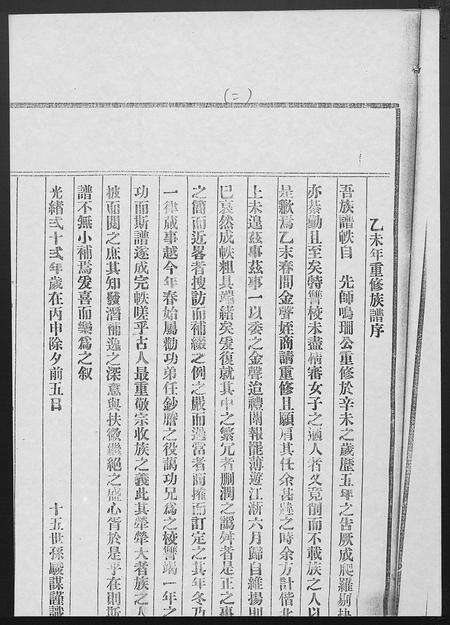 (二)
乙未年重修族譜序
吾族譜帙自 先師鳴珂公重修於辛未之歲歷五年之告厥成爬羅剔抉
亦綦勤且至矣特讐校未盡精審女子之適人者久竟削而不載族之人以
是歉焉乙未春間金聲姪商請重修且願肩其任余甚韙之時余方計偕北
上未遑茲事茲事一以委之金聲迨禮闈報罷薄遊江浙六月歸自維揚則
已裒然成帙粗具端緒矣爰復就其中之繁冗者刪潤之譌舛者是正之事
之簡而近畧者搜訪而補綴之例之嚴而過當者商搉而訂定之其年冬乃
一律蕆事越今年春始屬勸功弟任鈔謄之役謁功兄爲之校讐竭一年之
功而斯譜遂成完帙嗟乎古人最重敬宗收族之義此其犖犖大者族之人
披而閱之庶其知發潛闡逸之深意與扶微繼絕之盛心胥於是乎在則斯
譜不無小補焉爰喜而樂爲之叙
光緒弍十弍年歲在丙申除夕前五日 十五世孫 謀謹識